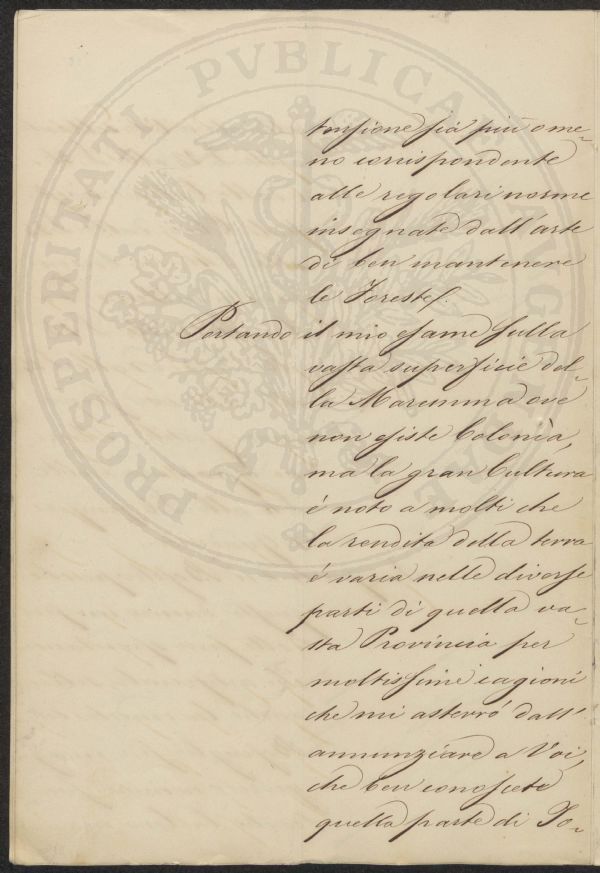 PROSPERITATI PVBLICAE AVGENDAE
tensione sia più o me-
no corrispondente
alle regolari norme
insegnate dall'arte
di ben mantenere
le Foreste.
Portando il mio esame sulla
vasta superficie del-
la Maremma ove
non esiste Colonìa,
ma la gran Cultura
é noto a molti che
la rendita della terra
é varia nelle diverse
parti di quella va-
sta Provincia per
moltissime cagioni
che mi asterró dall'
annunziare a Voi,
che ben conoscete
quella parte di To-